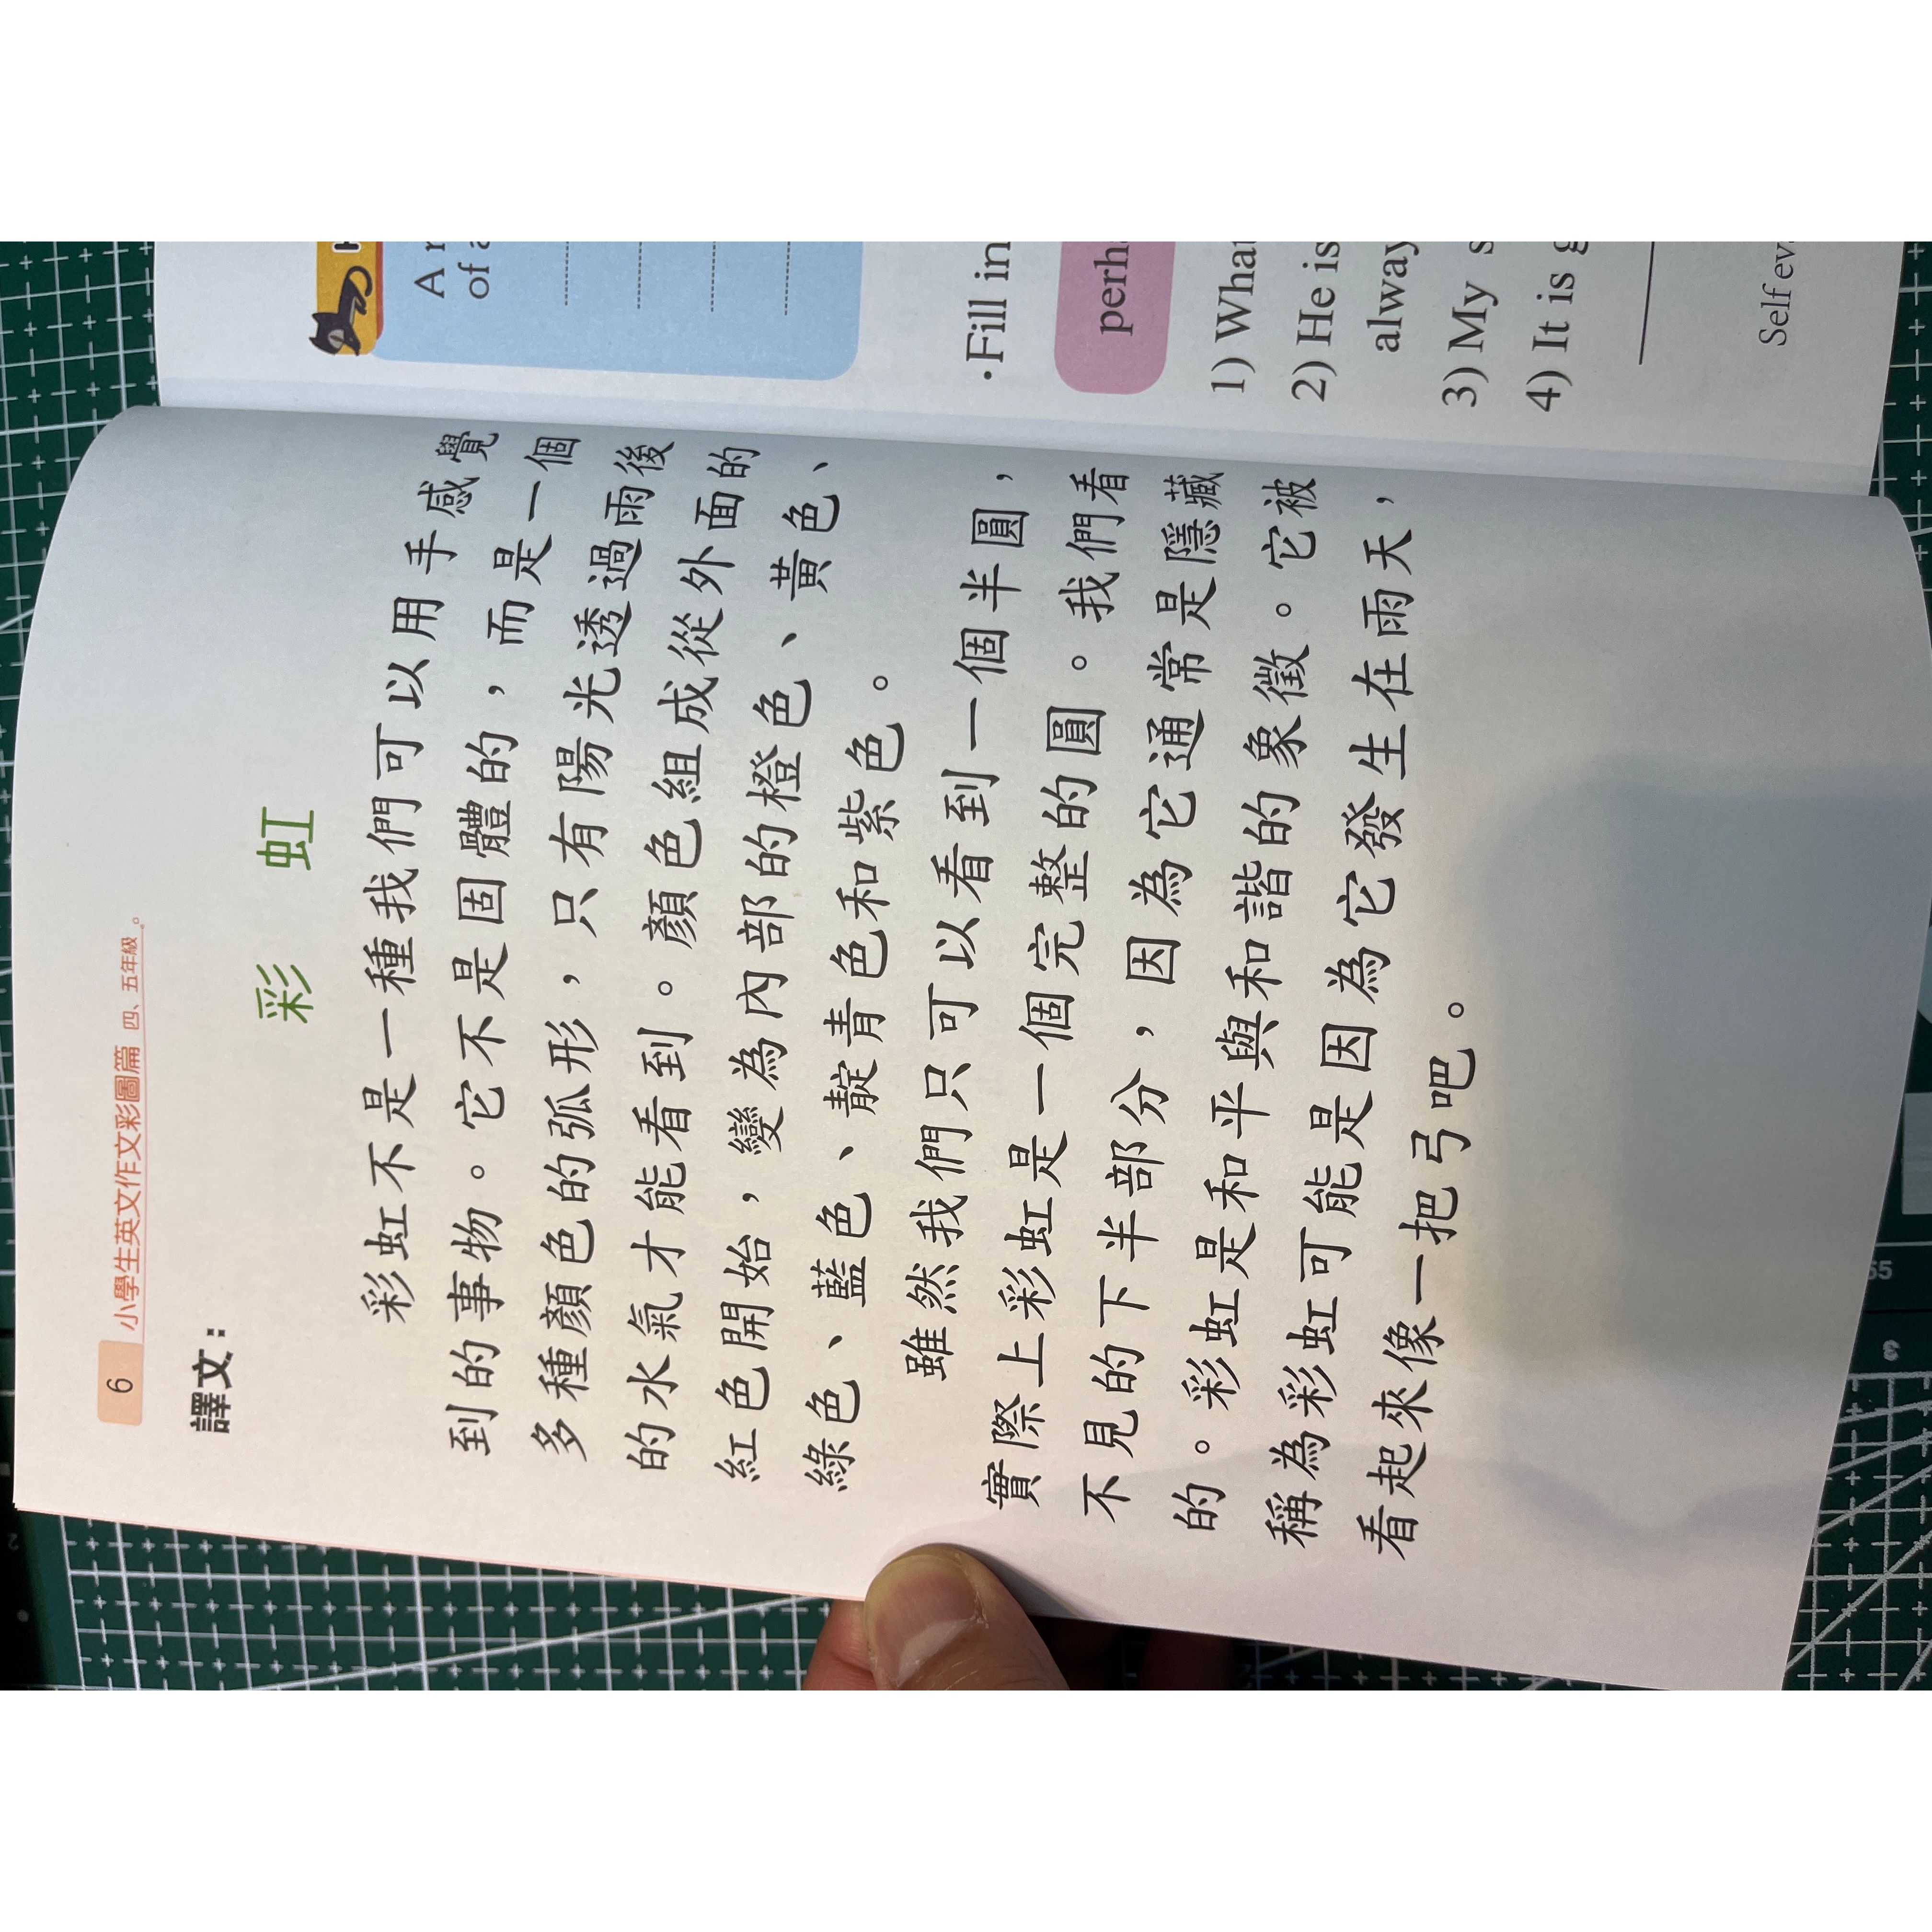 6 小學生英文作文彩圖篇 四、五年級。
譯文：
彩 虹
彩虹不是一種我們可以用手感覺
到的事物。它不是固體的，而是一個
多種顏色的弧形，只有陽光透過雨後
的水氣才能看到。顏色組成從外面的
紅色開始，變為內部的橙色、黃色、
綠色、藍色、靛青色和紫色。
雖然我們只可以看到一個半圓，
實際上彩虹是一個完整的圓。我們看
不見的下半部分，因為它通常是隱藏
的。彩虹是和平與和諧的象徵。它被
稱為彩虹可能是因為它發生在雨天，
看起來像一把弓吧。
A
of
·Fill in
perh
1) What
2) He is
alway
3) My s
4) It is g
Self ev